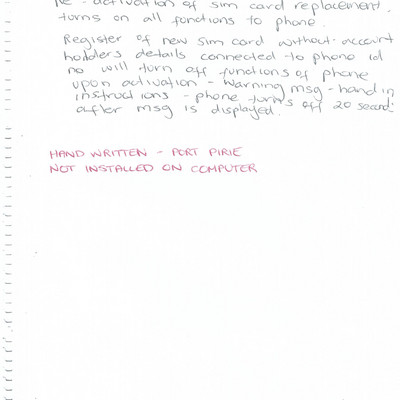 Re-activation of sim card replacement.
turns on all fonctions to phone.
Register of new sim card without account
holders details connected to phone id
no will turn off functions of phone
upon activation - warning msg - hand in
instructions - phone turns off 20 seconds
after msg is displayed.
HAND WRITTEN - PORT PIRIE
NOT INSTALLED ON COMPUTER